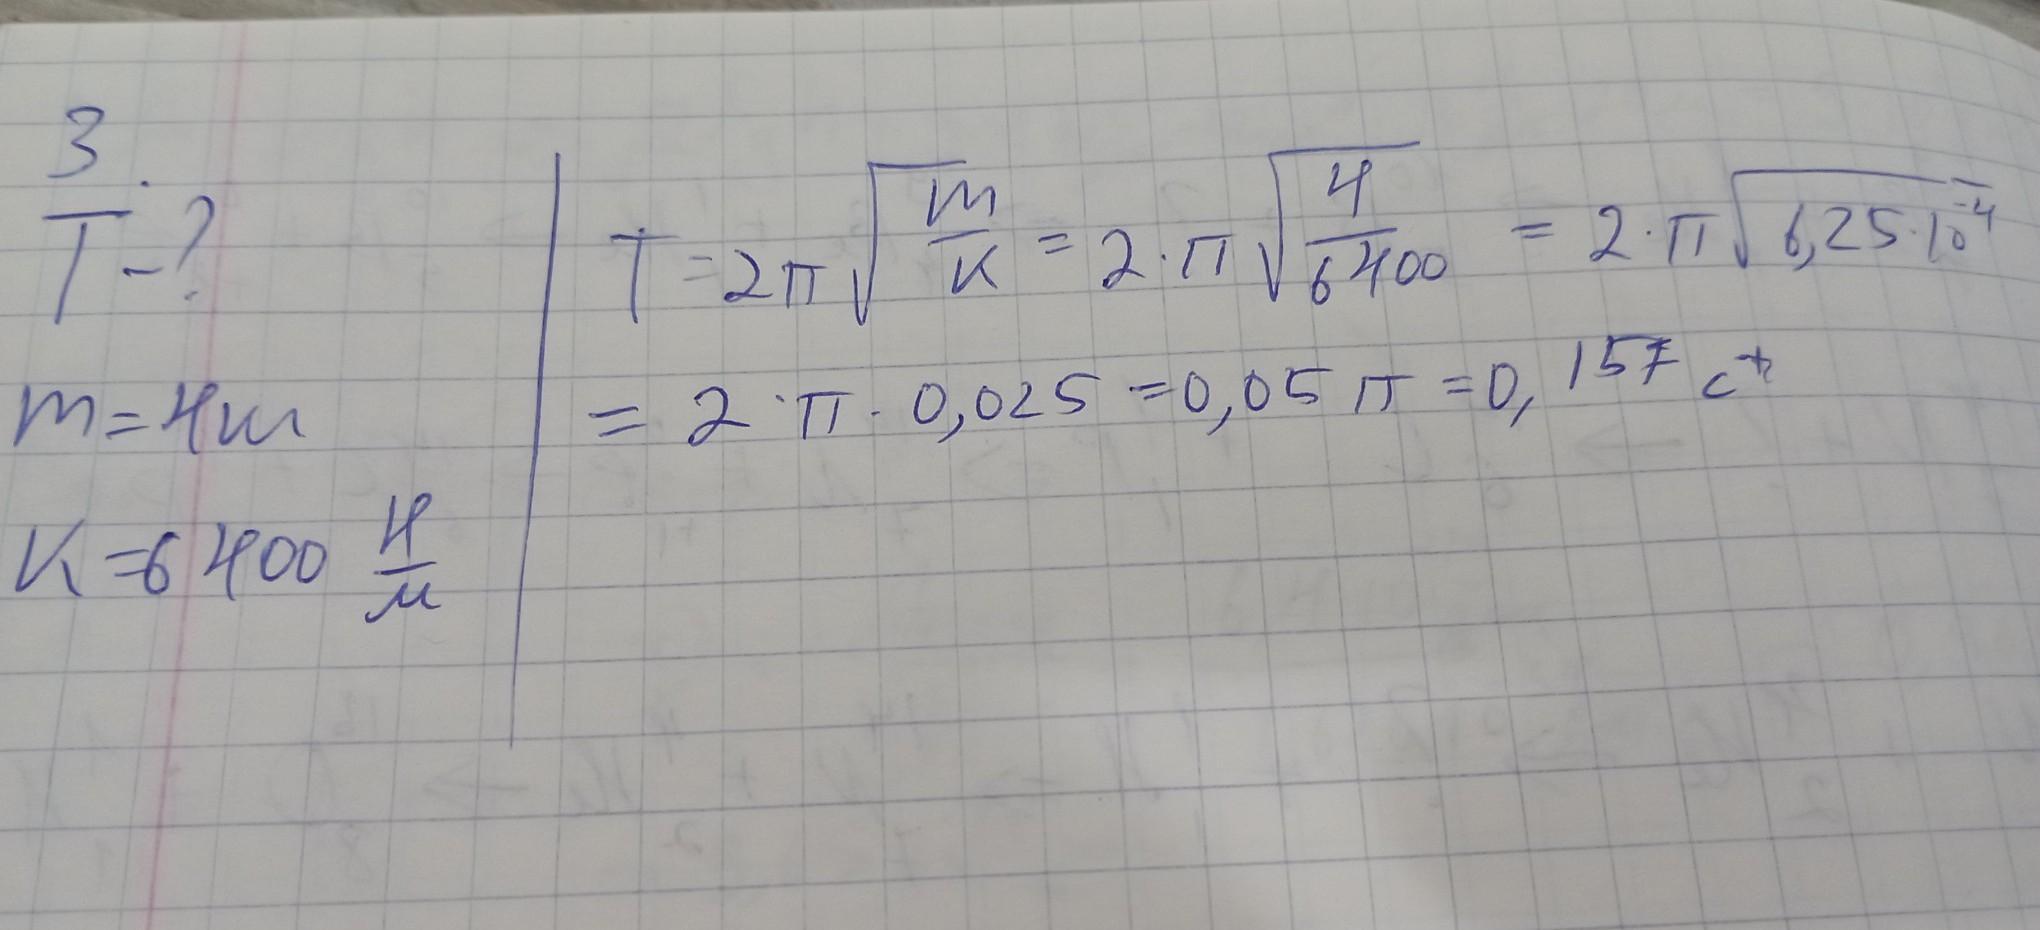 3.
T-?
m=4кг
K=6400 Н/м
T=2π√(m/K)=2·π√(4/6400) = 2·π√(6,25·10⁻⁴)
= 2·π·0,025=0,05π=0,157 с